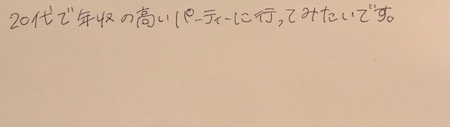 20代で年収の高いパーティーに行ってみたいです。